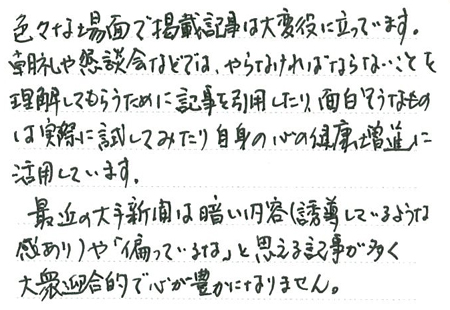 色々な場面で掲載記事は大変役に立っています。
朝礼や懇談会などでは、やらなければならないことを
理解してもらうために記事を引用したり、面白そうなもの
は実際に試してみたり自身の心の健康増進に
活用しています。
最近の大手新聞は暗い内容(誘導しているような
感あり)や「偏っているな」と思える記事が多く
大衆迎合的で心が豊かになりません。